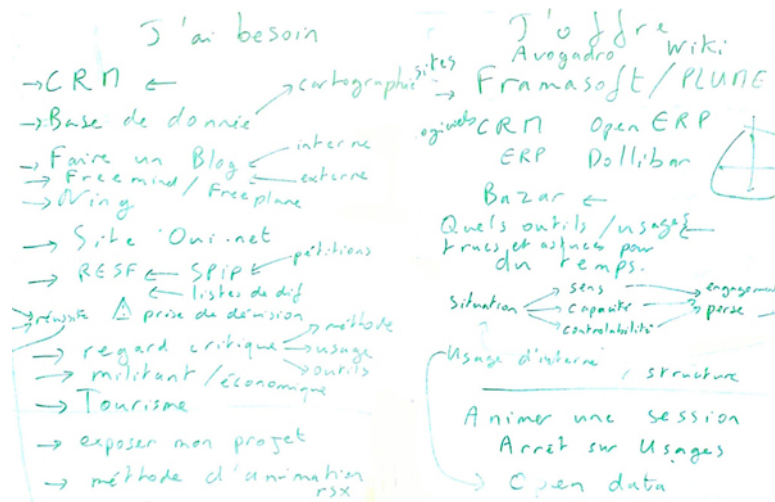 J'ai besoin
→ CRM ←
→ Base de donnée → cartographie
→ Faire un Blog ← interne
← externe
→ Freemind / Freeplane
→ Ning
→ Site Oui.net
→ RESF ← SPIP ← pétitions
← listes de dif
→ réussite ⚠ prise de décision
→ regard critique → méthode
→ usage
→ outils
→ militant / économique
→ Tourisme
→ exposer mon projet
→ méthode d'animation
rsx
J'offre
Avogadro Wiki
sites
→ Framasoft / PLUME
logiciels CRM Open ERP
ERP Dollibar
Bazar ←
Quels outils / usages ←
trucs et astuces pour
du temps.
situation → sens → engagement
→ capacité → perse
→ controlabilité
Usage d'interne
, structure
Animer une session
Arrêt sur Usages
→ Open data